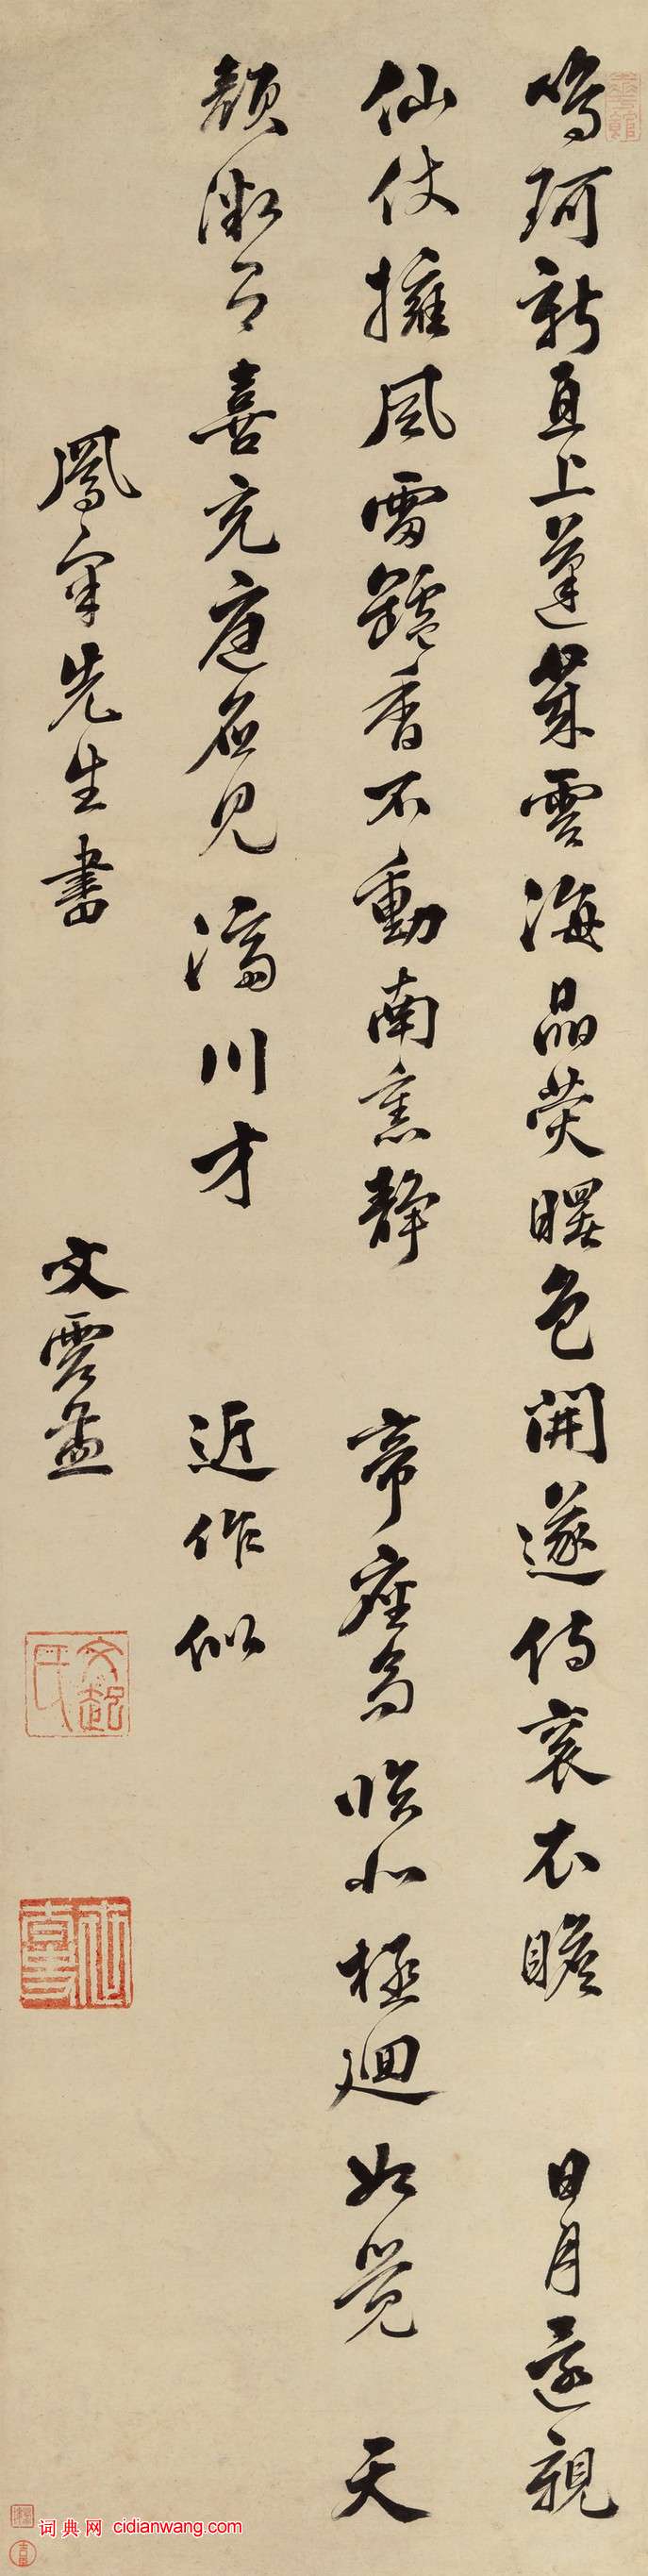 鳴珂新直上蓬萊雲海晶熒曙色開遂侍袞衣瞻 日月還親
仙仗擁風雷罏香不動南熏靜 帝座高臨北極迴如覺 天
顏微有喜充庭應見濟川才 近作似
鳳 先生書 文震孟
文起氏
词典网 cidianwang.com